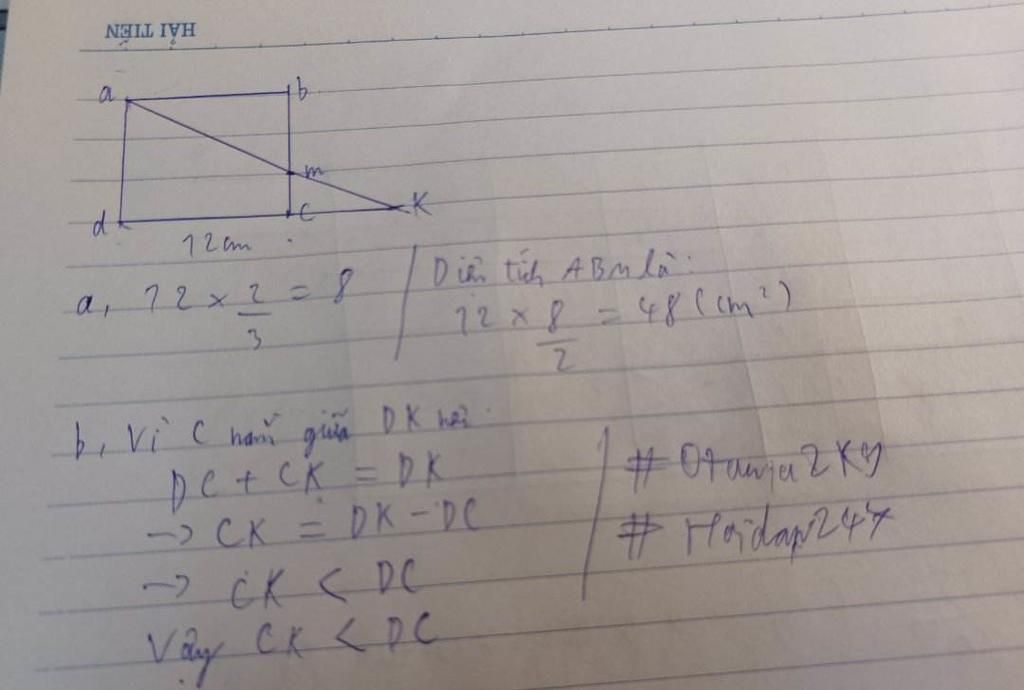 HẢI TIẾN
a
b
m
d
c
K
12cm
a, 12 × 2/3 = 8
Diện tích ABM là:
12 × 8/2 = 48 (cm²)
b, Vì C nằm giữa DK nên
DC + CK = DK
→ CK = DK - DC
→ CK < DC
Vậy CK < DC
# Hoidap247